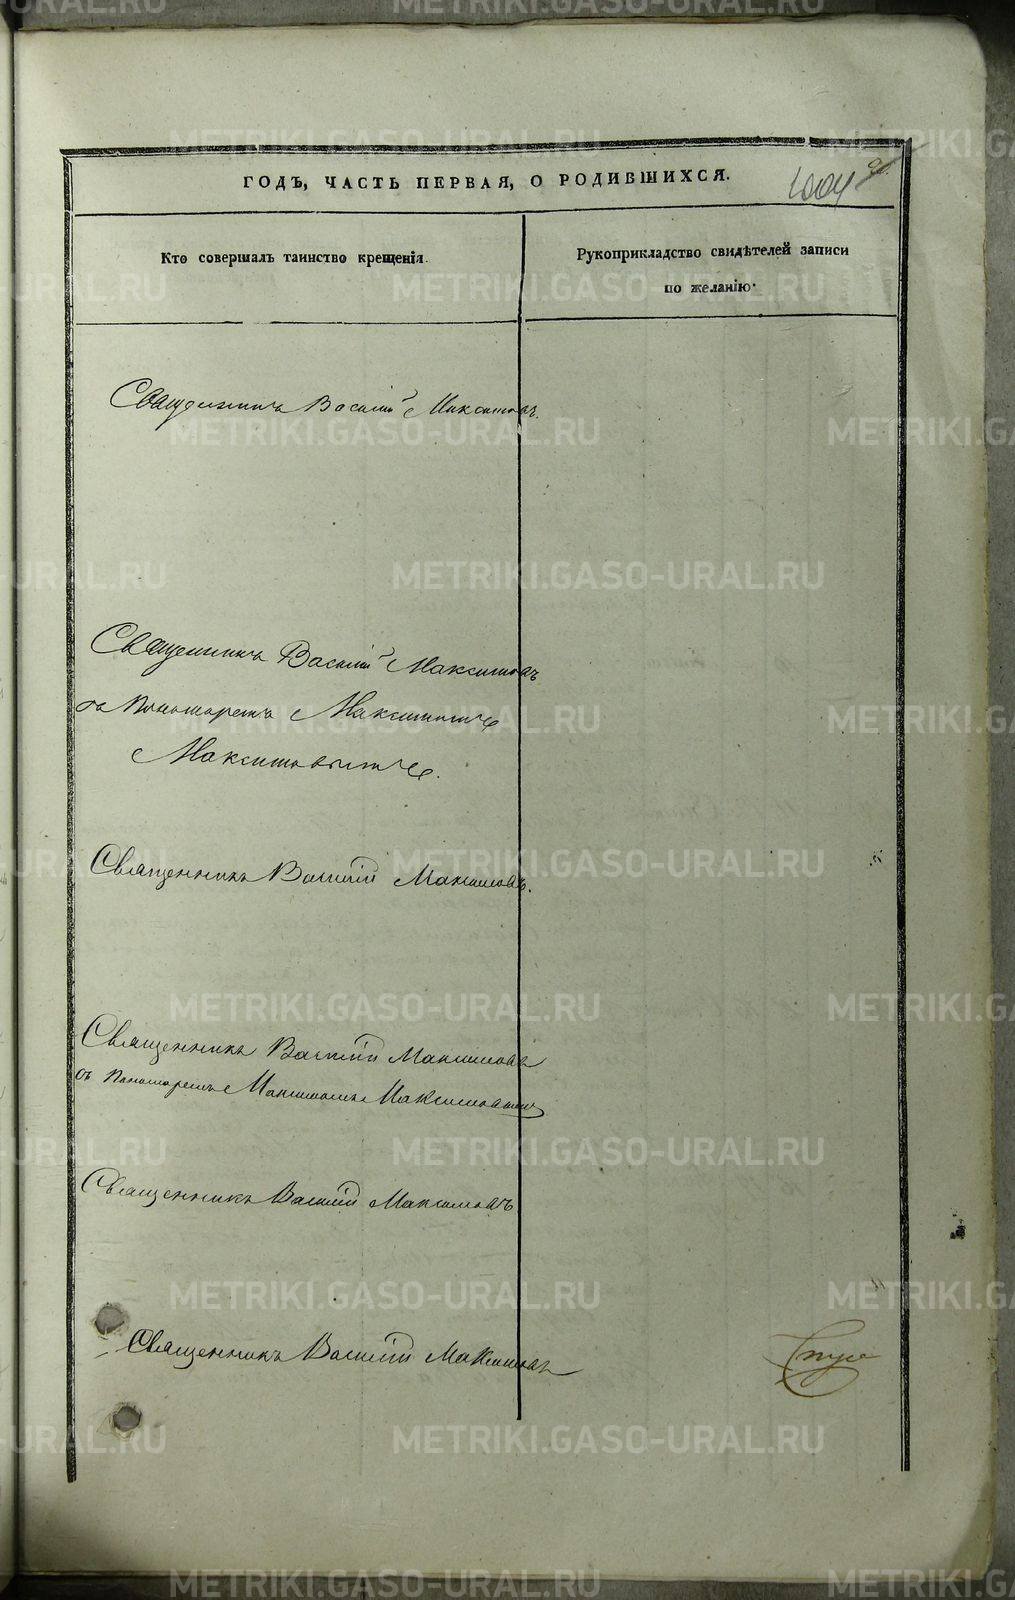 ГОДЪ, ЧАСТЬ ПЕРВАЯ, О РОДИВШИХСЯ.
1004
Кто совершалъ таинство крещенія.
Рукоприкладство свидѣтелей записи
по желанію.
Священникъ Василій Максимовъ.
Священникъ Василій Максимовъ
съ Пономаремъ Максимомъ
Максимовымъ.
Священникъ Василій Максимовъ.
Священникъ Василій Максимовъ
съ Пономаремъ Максимомъ Максимовымъ
Священникъ Василій Максимовъ
Священникъ Василій Максимовъ
METRIKI.GASO-URAL.RU